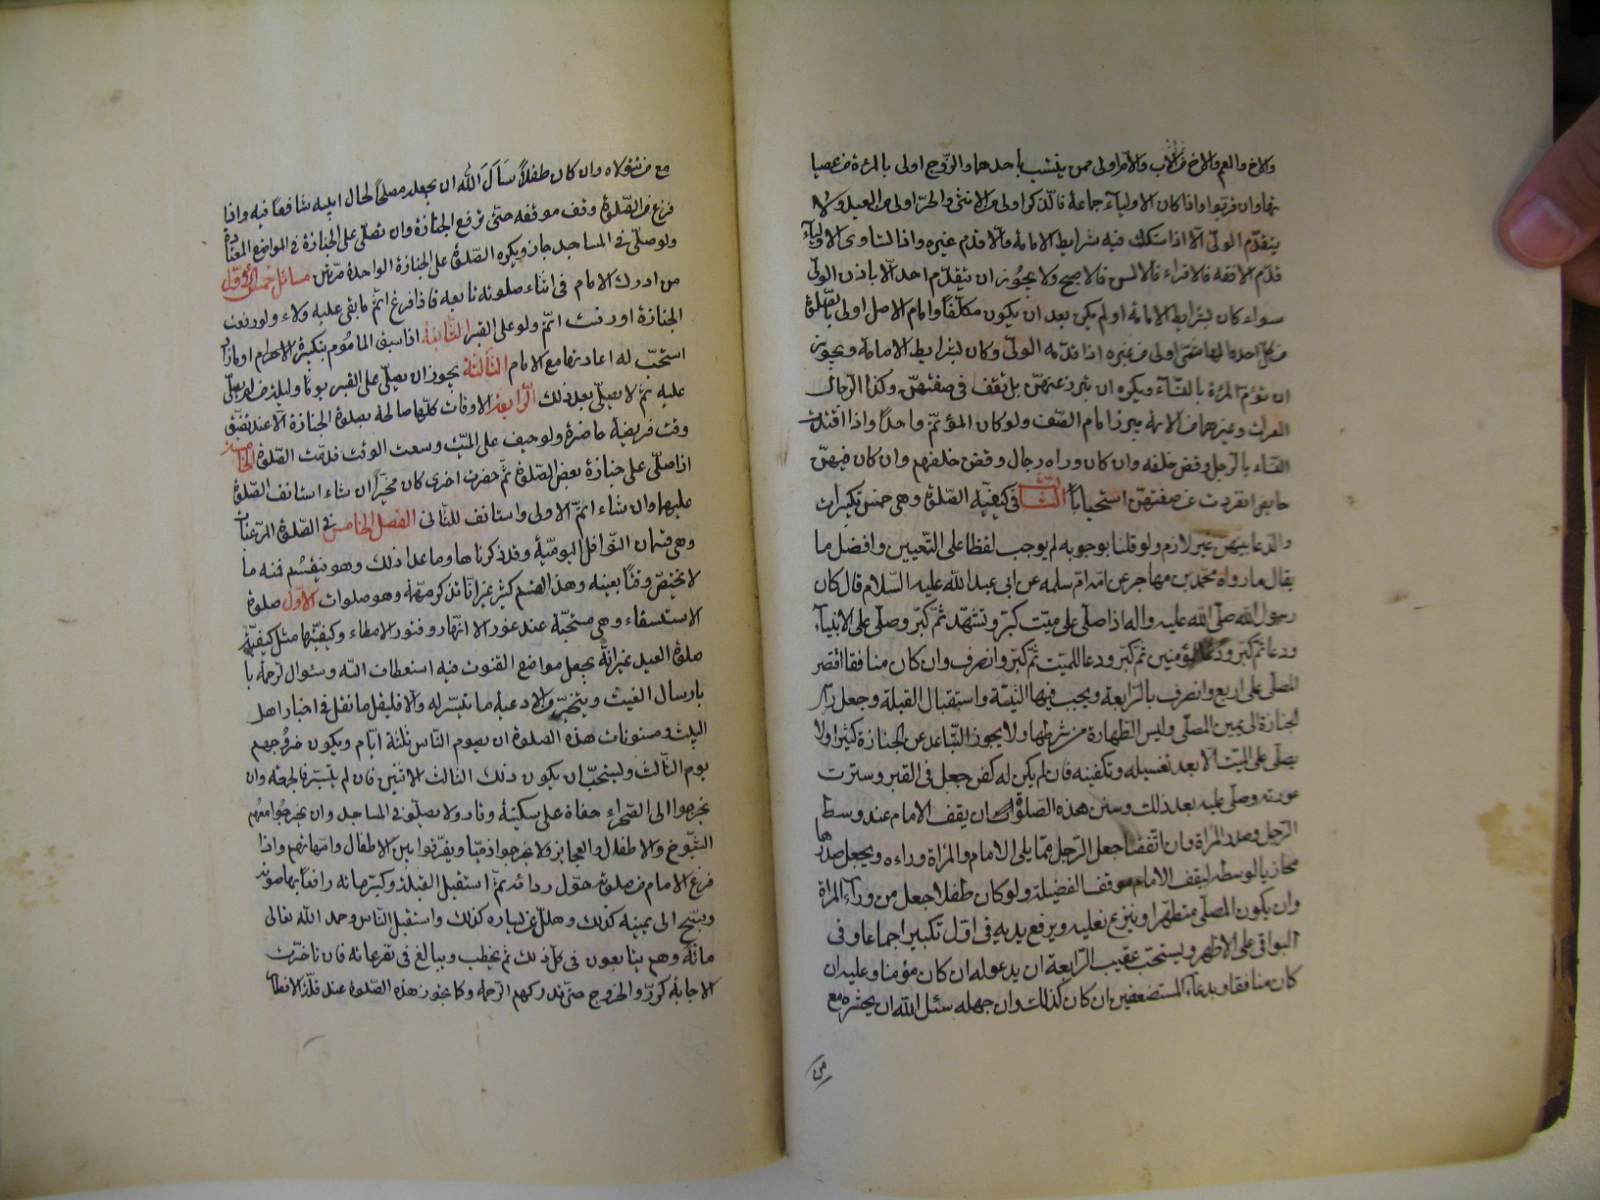 والاخ والعم والاخ من الاب والام اولى ممن ينتسب باحدهما والزوج اولى بالمرءة من عصباتها
وان قربوا واذا كان الاولياء جماعة فالذكر اولى من الانثى والحر اولى من العبد ولا
يتقدم الولي الا اذا استكملت فيه شرايط الامامة والا قدم غيره واذا تساوى الاولياء
قدم الافقه فالاقراء فالاسن فالاصبح ولا يجوز ان يتقدم احد الا باذن الولي
سواء كان بشرايط الامامة او لم يكن بعد ان يكون مكلفا وامام الاصل اولى بالصلوة
من كل احد والهاشمي اولى من غيره اذا قدمه الولي وكان بشرايط الامامة ويجوز
ان تؤم المرءة بالنساء ويكره ان تبرز عنهن بل تقف في صفهن وكذا الرجال
العراة وغيرهما من الائمة يبرز امام الصف ولو كان المؤتم واحدا واذا اقتدت
النساء بالرجل وقفن خلفه وان كان وراه رجال وقفن خلفهم وان كان فيهن
حايض انفردت عن صفهن استحبابا الثالث في كيفية الصلوة وهي خمس تكبيرات
والدعا بينهن غير لازم ولو قلنا بوجوبه لم يوجب لفظا على التعيين وافضل ما
يقال ما رواه محمد بن مهاجر عن امه ام سلمه عن ابي عبد الله عليه السلام قال كان
رسول الله صلى الله عليه واله اذا صلى على ميت كبر وتشهد ثم كبر وصلى على الانبياء
ودعا ثم كبر ودعا للمؤمنين ثم كبر ودعا للميت ثم كبر وانصرف وان كان منافقا اقتصر
المصلي على اربع وانصرف بالرابعة ويجب فيها النية واستقبال القبلة وجعل راس
الجنازة الى يمين المصلي وليس الطهارة من شرطها ولا يجوز التباعد عن الجنازة كثيرا ولا
يصلى على الميت الا بعد تغسيله وتكفينه فان لم يكن له كفن جعل في القبر وسترت
عورته وصلى عليه بعد ذلك وسنن هذه الصلوة ان يقف الامام عند وسط
الرجل وصدر المراة وان اتفقتا جعل الرجل مما يلى الامام والمراة وراءه ويجعل صدرها
محاذيا لوسطه ليقف الامام موقف الفضيلة ولو كان طفلا جعل من وراء المراة
وان يكون المصلي متطهرا وينزع نعليه ويرفع يديه في اول تكبير اجماعا وفى
البواقى على الاظهر ويستحب عقيب الرابعة ان يدعو له ان كان مؤمنا وعليه ان
كان منافقا وبدعاء المستضعفين ان كان كذلك وان جهله سئل الله ان يحشره مع
من
مع من يتولاه وان كان طفلا سأل الله ان يجعله مصلحا لحال ابيه شافعا فيه واذا
فرغ من الصلوة وقف موقفه حتى ترفع الجنازة وان يصلى على الجنازة في المواضع المعتادة
ولو صلى في المساجد جاز ويكره الصلوة على الجنازة الواحدة مرتين مسائل خمس الاول
من ادرك الامام في اثناء صلوته تابعه فاذا فرغ اتم ما بقى عليه ولاء ولو رفعت
الجنازة او دفنت اتم ولو على القبر الثانية اذا سبق الماموم بتكبيرة الاحرام او ما زاد
استحب له اعادتها مع الامام الثالثة يجوز ان يصلى على القبر يوما وليلة من لم يصل
عليه ثم لا يصلى بعد ذلك الرابعة الاوقات كلها صالحة بصلوة الجنازة الا عند تضيق
وقت فريضة حاضرة ولو خيف على الميت وسعت الوقت قدمت الصلوة الخامسة
اذا صلى على جنازة بعض الصلوة ثم حضرت اخرى كان مخيرا ان شاء استانف الصلوة
عليهما وان شاء اتم الاولى واستانف للثانى الفصل الخامس في الصلوة المرغبات
وهى قسمان النوافل اليومية وقد ذكرناها وما عدا ذلك وهو ينقسم فمنه ما
لا يختص وقتا بعينه وهذا القسم كثير غير انا نذكر مهمه وهو صلوات الاول صلوة
الاستسقاء وهى مستحبة عند غور الانهار وفتور الامطار وكيفيتها مثل كيفية
صلوة العيد غير انه يجعل مواضع القنوت فيه استعطاف الله وسئوال الرحمة با
بارسال الغيث ويتخير من الادعية ما تيسر له والا فليقل ما نقل في اخبار اهل
البيت ومسنونات هذه الصلوة ان يصوم الناس ثلثة ايام ويكون خروجهم
يوم الثالث ويستحب ان يكون ذلك الثالث الاثنين فان لم يتيسر فالجمعة وان
يخرجوا الى الصحراء حفاة على سكينة ووقار ولا يصلون في المساجد وان يخرجوا معهم
الشيوخ والاطفال والعجايز ولا يخرجوا ذميا ويفرقوا بين الاطفال وامهاتهم واذا
فرغ الامام من صلوته حول ردائه ثم استقبل القبلة وكبر مائة رافعا بها صوته
وسبح الى يمينه كذلك وهلل عن يساره كذلك واستقبل الناس وحمد الله تعالى
مائة وهم يتابعون في كل ذلك ثم يخطب ويبالغ في تضرعاته فان تاخرت
الاجابة كرروا الخروج حتى تدركهم الرحمة وكما يجوز هذه الصلوة عند قلة الامطار